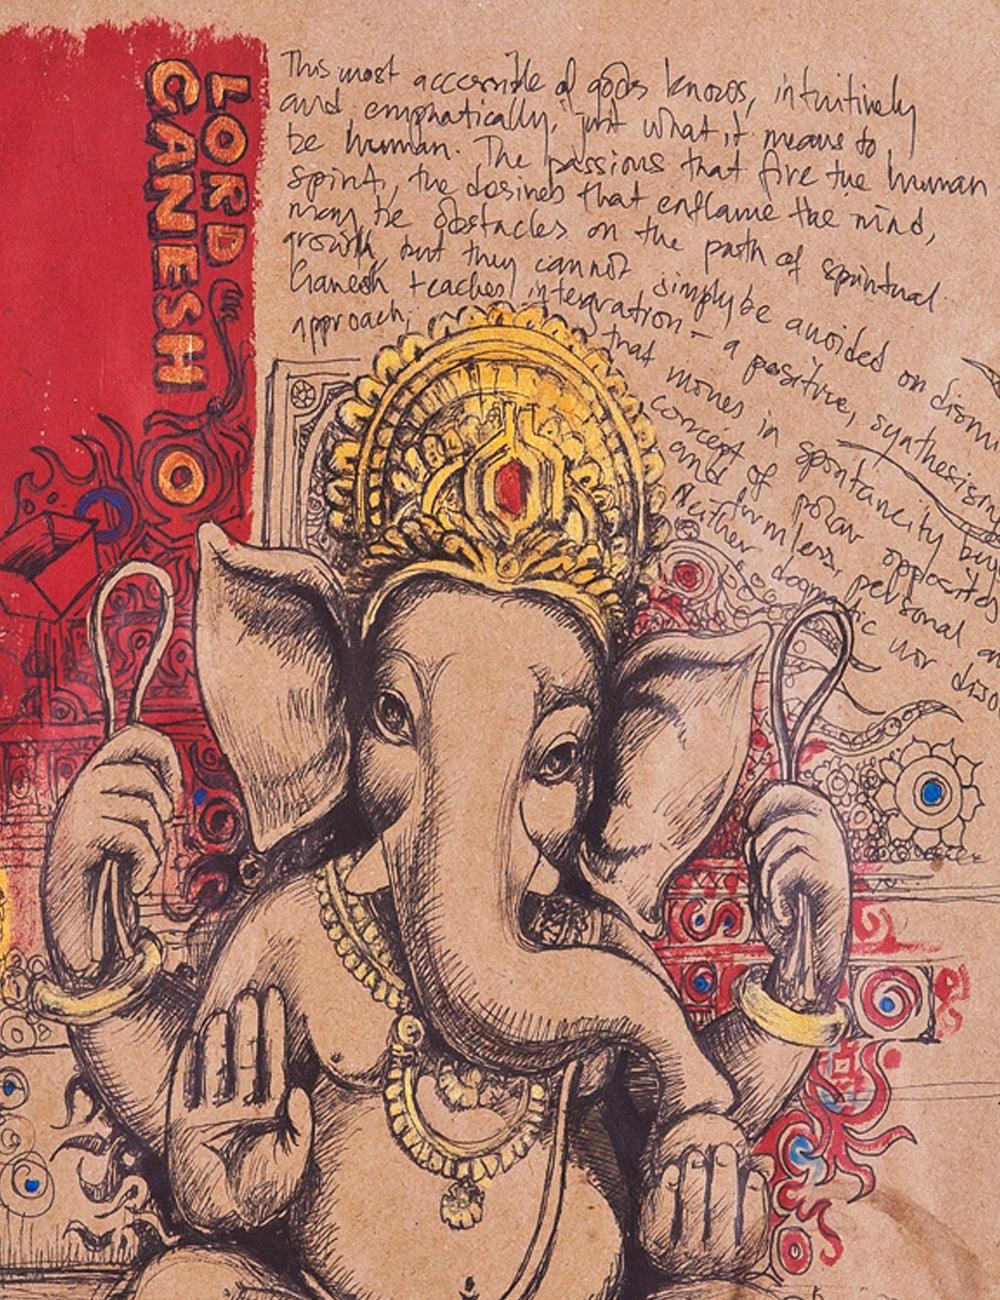 LORD
GANESH
This most accessible of gods knows, intuitively
and emphatically, just what it means to
be human. The passions that fire the human
spirit, the desires that enflame the mind,
may be obstacles on the path of spiritual
growth, but they cannot simply be avoided or dismi
Ganesh teaches integration – a positive, synthesising
approach, that moves in spontaneity bey
concept of polar opposites
and formless, personal an
Neither dogmatic nor diso